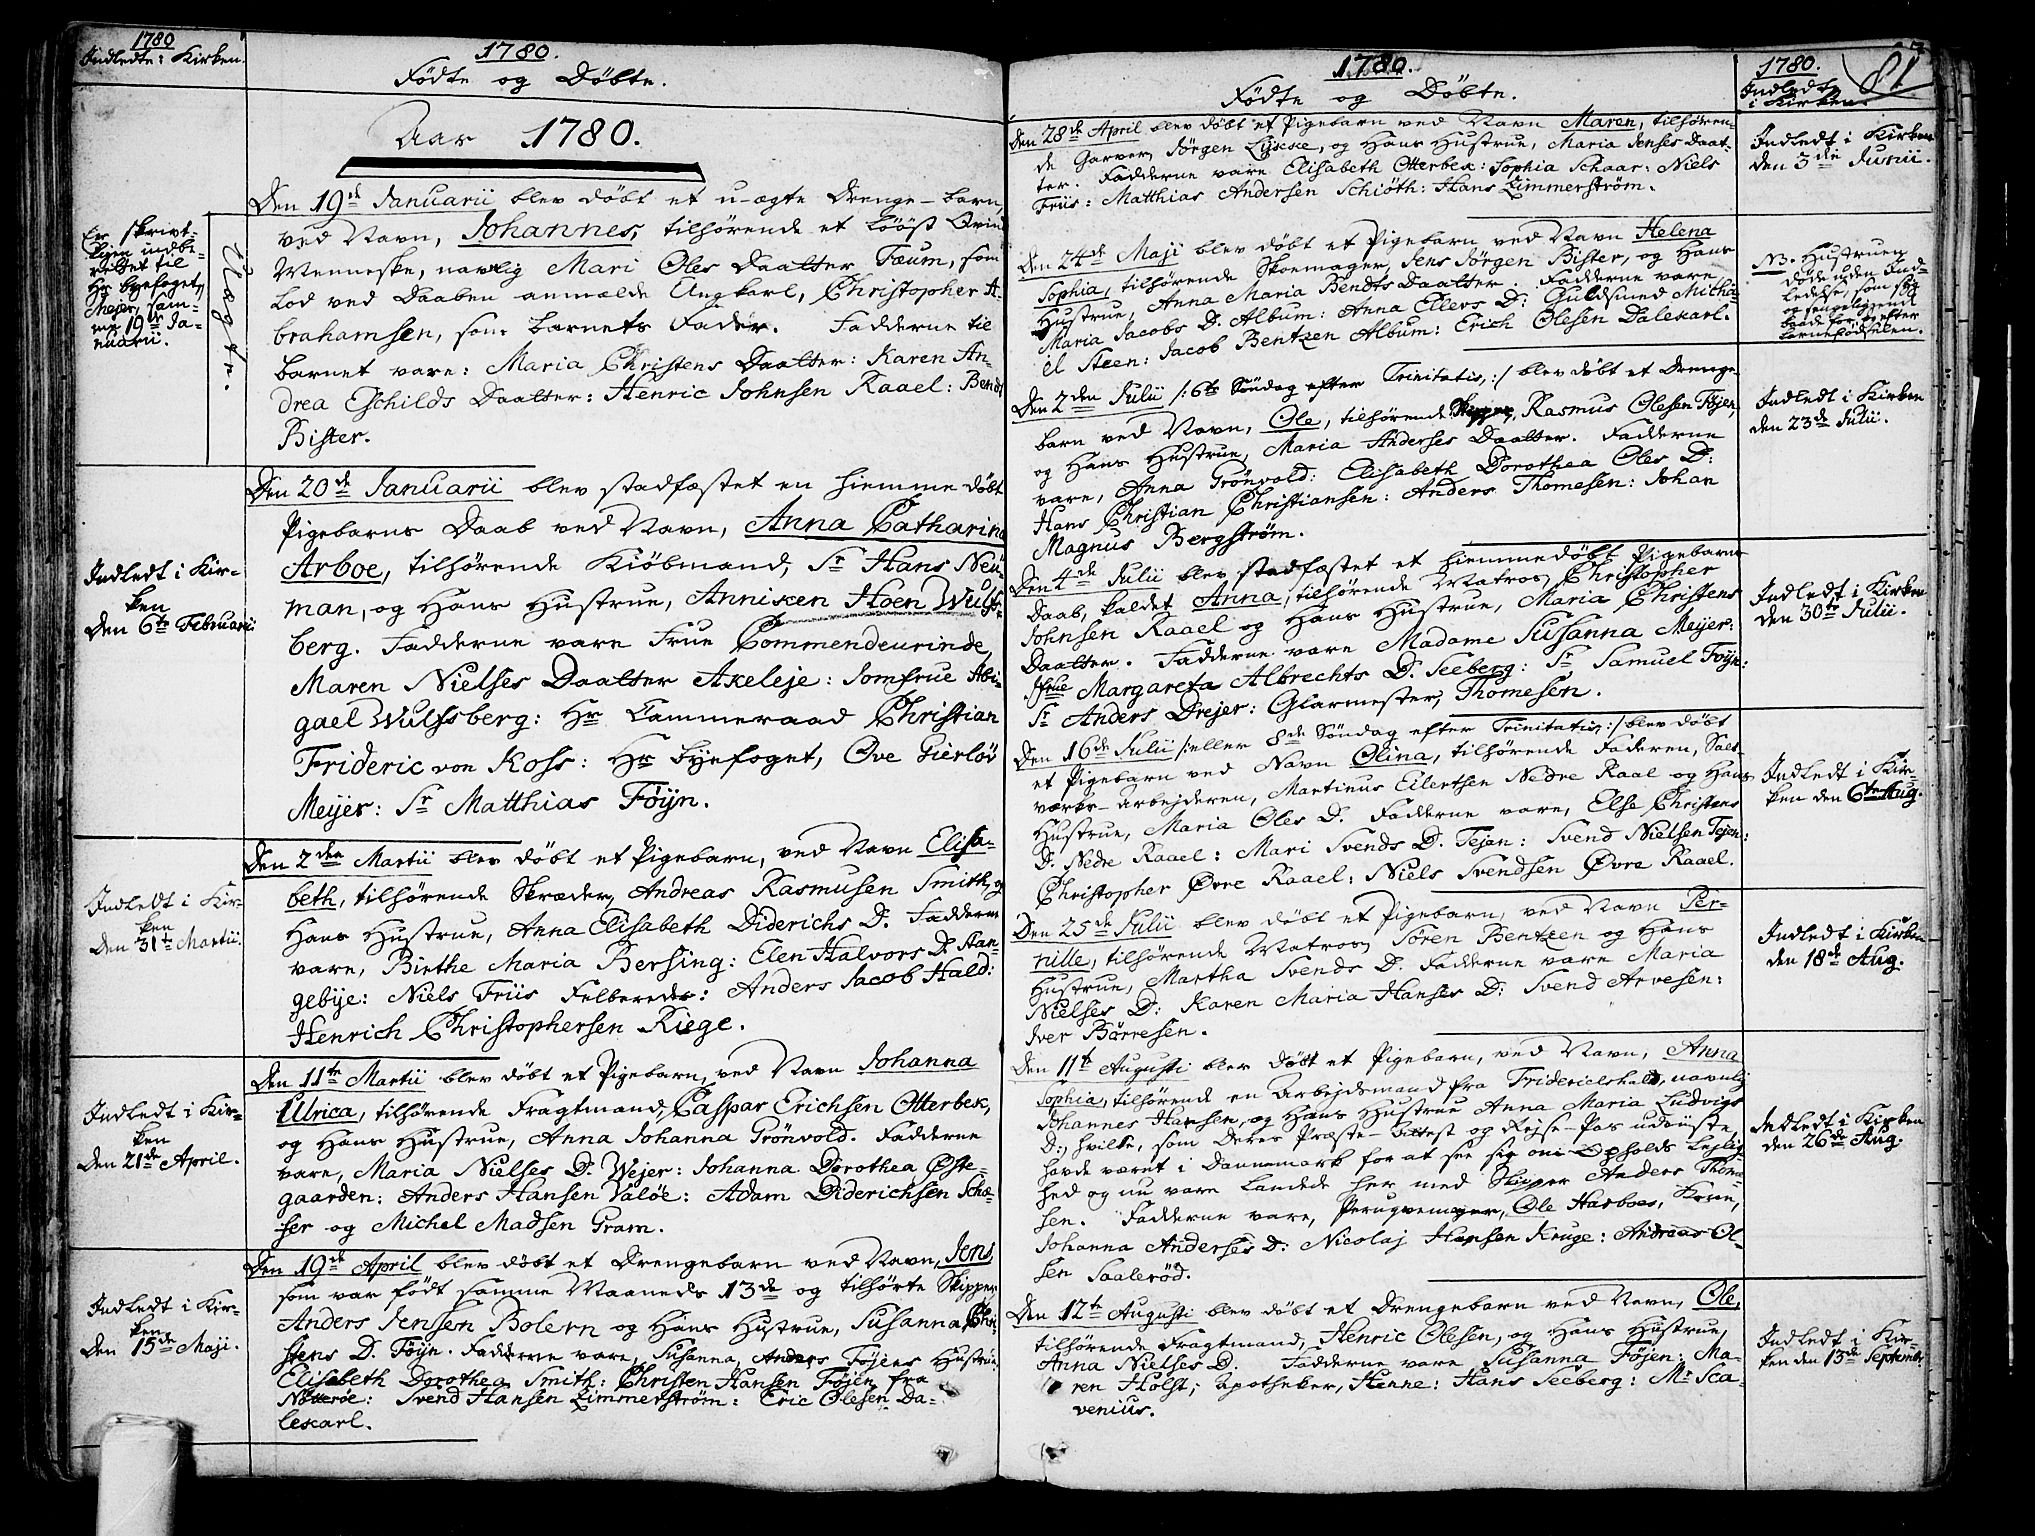 1780
Indledte: Kirken.
1780.
Fødte og Døbte.
Aar 1780.
Er skrivt-
ligen indbe-
rettet til
Hr byefoget,
Meyer, sam-
me 19de Ja-
nuarii.
Uægte.
Den 19de Januarii blev døbt et u-ægte Drenge-barn,
ved Navn, Johannes, tilhørende et Lööst Qvind
Menneske, navnlig Mari Oles Daatter Fæum, som
Lod ved Daaben anmælde Ungkarl, Christopher A-
brahamsen, som barnets Fader. Fadderne til
barnet vare: Maria Christens Daatter: Karen An-
drea Eschilds Daatter: Henric Johnsen Raael: Bendt
Bister.
Indledt i Kir-
ken
den 6te Februarii
Den 20de Januarii blev stadfæstet en hiemme døbt
Pigebarns Daab ved Navn, Anna Catharina
Arboe, tilhørende Kiöbmand, Sr Hans Neü-
man, og Hans Hustrue, Anniken Hoen Wulfs-
berg. Fadderne vare Frue Commendeurinde,
Maren Nielses Daatter Akeleje: Jomfrue Abi-
gael Wulfsberg: Hr Cammeraad Christian
Frideric von Koss: Hr byefoget, Ove Gierløv
Meyer: Sr Matthias Föyn.
Indledt i Kir-
ken
den 31te Martii.
Den 2den Martii blev døbt et Pigebarn, ved Navn Elisa-
beth, tilhørende Skræder, Andreas Rasmusen Smith, og
Hans Hustrue, Anna Elisabeth Diderichs D. Fadderne
vare, Birthe Maria Bersing: Elen Halvors D. Aan-
gebye: Niels Friis Felbereder: Anders Jacob Hald:
Henrich Christophersen Riege.
Indledt i Kir-
ken
den 21de April.
Den 11te Martii blev døbt et Pigebarn, ved Navn Johanna
Ulrica, tilhørende Fragtmand, Caspar Erichsen Otterbek,
og Hans Hustrue, Anna Johanna Grönvold. Fadderne
vare, Maria Nielses D. Wejer: Johanna Dorothea Øste-
gaarden: Anders Hansen Valöe: Adam Diderichsen Schæ-
fer og Michel Madsen Gram.
Indledt i Kir-
ken
den 15de Maji.
Den 19de April blev døbt et Drengebarn ved Navn, Jens,
som var født samme Maaneds 13de og tilhørte Skipper
Anders Jensen Bolern og Hans Hustrue, Susanna Chri-
stens D. Föyn. Fadderne vare, Susanna, Anders Föjens Hustrue,
Elisabeth Dorothea Smith: Christen Hansen Föjen fra
Nötteröe: Svend Hansen Zimmerström: Eric Olesen Da-
lekarl.
1780.
Fødte og Døbte.
1780.
Indledte
i Kirken.
81
Den 28de April blev døbt et Pigebarn ved Navn Maren, tilhøren-
de Garver, Jörgen Lykke, og Hans Hustrue, Maria Jenses Daat-
ter. Fadderne vare Elisabeth Otterbek: Sophia Schaar: Niels
Friis: Matthias Andersen Schiöth: Hans Zimmerström.
Indledt i Kirken
den 3die Junii.
Den 24de Maji blev døbt et Pigebarn ved Navn Helena
Sophia, tilhørende Skoemager, Jens Jörgen Bister, og Hans
Hustrue, Anna Maria Bendts Daatter. Fadderne vare
Maria Jacobs D. Album: Anna Ellevs D: Guldsmed Micha-
el Steen: Jacob Bentzen Album: Erich Olesen Dalekarl.
NB. Hustruen
døde uden Ind-
ledelse, som syg
og sengeliggend
baade for og efter
barnefødselen.
Den 2den Julii /: 6te Söndag efter Trinitatis, :/ blev døbt et Drenge-
barn ved Navn, Ole, tilhørende Skipper, Rasmus Olesen Föjen,
og Hans Hustrue, Maria Anderses Daatter. Fadderne
vare, Anna Grönvold: Elisabeth Dorothea Oles D:
Hans Christian Christiansen: Anders Thomesen: Johan
Magnus Bergström.
Indledt i Kirken
den 23de Julii.
Den 4de Julii blev stadfæstet et hiemmedøbt Pigebarns
Daab, kaldet Anna, tilhørende Matros, Christopher
Johnsen Raael og Hans Hustrue, Maria Christens
Daatter. Fadderne vare Madame Susanna Meyer:
Jfrue Margareta Albrechts D. Seeberg: Sr Samuel Föyn:
Sr Anders Drejer: Glarmester, Thomesen.
Indledt i Kirken
den 30te Julii.
Den 16de Julii /: eller 8de Söndag efter Trinitatis, :/ blev døbt
et Pigebarn ved Navn Olina, tilhørende Faderen, Salt-
værks-arbejderen, Martinus Eilertsen Nedre Raael og Hans
Hustrue, Maria Oles D. Fadderne vare, Else Christens
D. Nedre Raael: Mari Svends D. Tejen: Svend Nielsen Tejen:
Christopher Øvre Raael: Niels Svendsen Øvre Raael.
Indledt i Kir-
ken den 6te Aug.
Den 25de Julii blev døbt et Pigebarn, ved Navn Per-
nille, tilhørende Matros, Sören Bentzen og Hans
Hustrue, Martha Svends D. Fadderne vare Maria
Nielses D: Karen Maria Hanses D: Svend Arvesen:
Iver Börresen.
Indledt i Kirken
den 18de Aug.
Den 11te Augusti blev døbt et Pigebarn, ved Navn, Anna
Sophia, tilhørende en Arbejdsmand fra Friderichshald, navnlig
Johannes Hansen, og Hans Hustrue Anna Maria Ludvigs
D:, hvilke, som deres Præste-attest og Rejse-Pas udviiste,
havde været i Dannemark for at see sig om Opholds Lejlig-
hed og nu vare Landede her med Skipper Anders Thome-
sen. Fadderne vare, Peruqvemager, Ole Harboes, Kone,
Johanna Anderses D: Nicolaj Hansen Kruge: Andreas Ol-
sen Saaleröd.
Indledt i Kirken
den 26de Aug.
Den 12te Augusti blev døbt et Drengebarn ved Navn, Ole,
tilhørende Fragtmand, Henric Olesen, og Hans Hustrue,
Anna Nielses D. Fadderne vare Susanna Föjen: Ma-
ren Holst; Apotheker, Henne: Hans Seeberg: Mr Sca-
venius.
Indledt i Kir-
ken den 13de Septembr